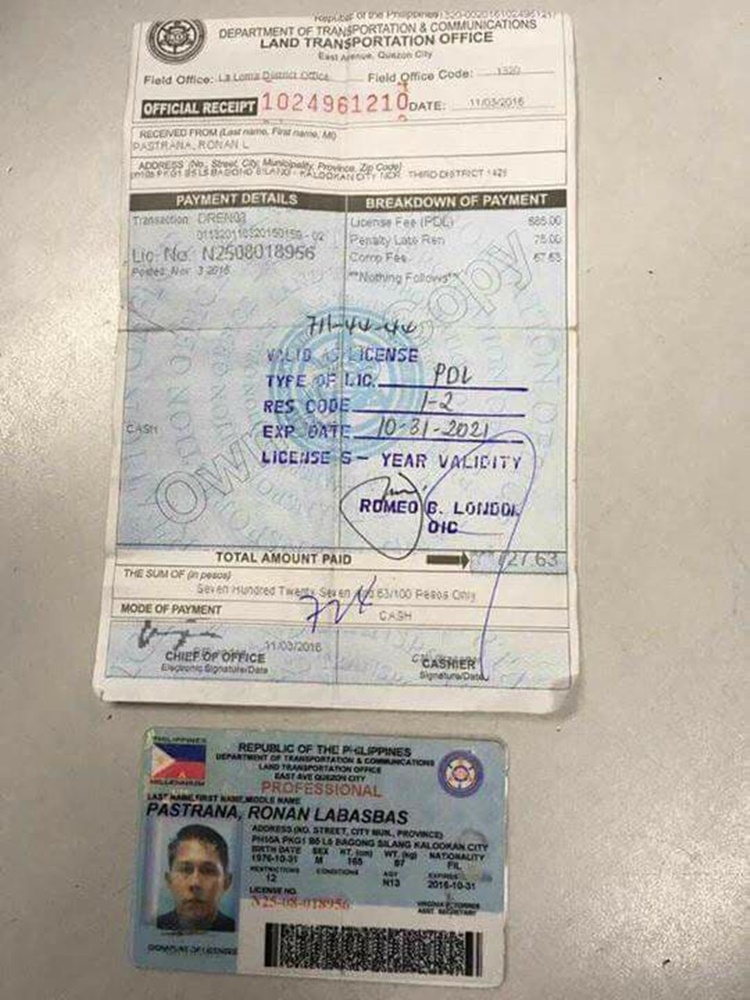 Republic of the Philippines
DEPARTMENT OF TRANSPORTATION & COMMUNICATIONS
LAND TRANSPORTATION OFFICE
East Avenue, Quezon City
Field Office: La Loma District Office Field Office Code: 1320
OFFICIAL RECEIPT 1024961210 DATE: 11/03/2016
RECEIVED FROM (Last name, First name, MI)
PASTRANA, RONAN L
ADDRESS (No., Street, City, Municipality, Province, Zip Code)
PH10A PKG1 B5 L5 BAGONG SILANG - KALOOKAN CITY NCR, THIRD DISTRICT 1428
PAYMENT DETAILS BREAKDOWN OF PAYMENT
Transaction: DREN03 License Fee (PDL) 585.00
Penalty Late Ren 75.00
Lic. No. N2508018956 Comp Fee 67.63
Posted: Nov 3 2016 **Nothing Follows**
Owner's Copy
711-44-44
VALID AS LICENSE
TYPE OF LIC. PDL
RES CODE 1-2
CASH EXP DATE 10-31-2021
LICENSE 5- YEAR VALIDITY
ROMEO B.
OIC
TOTAL AMOUNT PAID 727.63
THE SUM OF (in pesos)
Seven Hundred Twenty Seven and 63/100 Pesos Only
MODE OF PAYMENT CASH
11/03/2016
CHIEF OF OFFICE CASHIER
Electronic Signature/Date Signature/Date
PHILIPPINES
REPUBLIC OF THE PHILIPPINES
DEPARTMENT OF TRANSPORTATION & COMMUNICATIONS
LAND TRANSPORTATION OFFICE
EAST AVE QUEZON CITY
PROFESSIONAL
LAST NAME, FIRST NAME, MIDDLE NAME
PASTRANA, RONAN LABASBAS
ADDRESS (NO. STREET, CITY MUN., PROVINCE)
PH10A PKG1 B5 L5 BAGONG SILANG KALOOKAN CITY
BIRTH DATE SEX HT. (cm) WT. (kg) NATIONALITY
1976-10-31 M 165 67 FIL
RESTRICTIONS CONDITIONS AGY EXPIRES
12 N13 2016-10-31
LICENSE NO.
N25-08-018956
ASST. SECRETARY
SIGNATURE OF LICENSEE